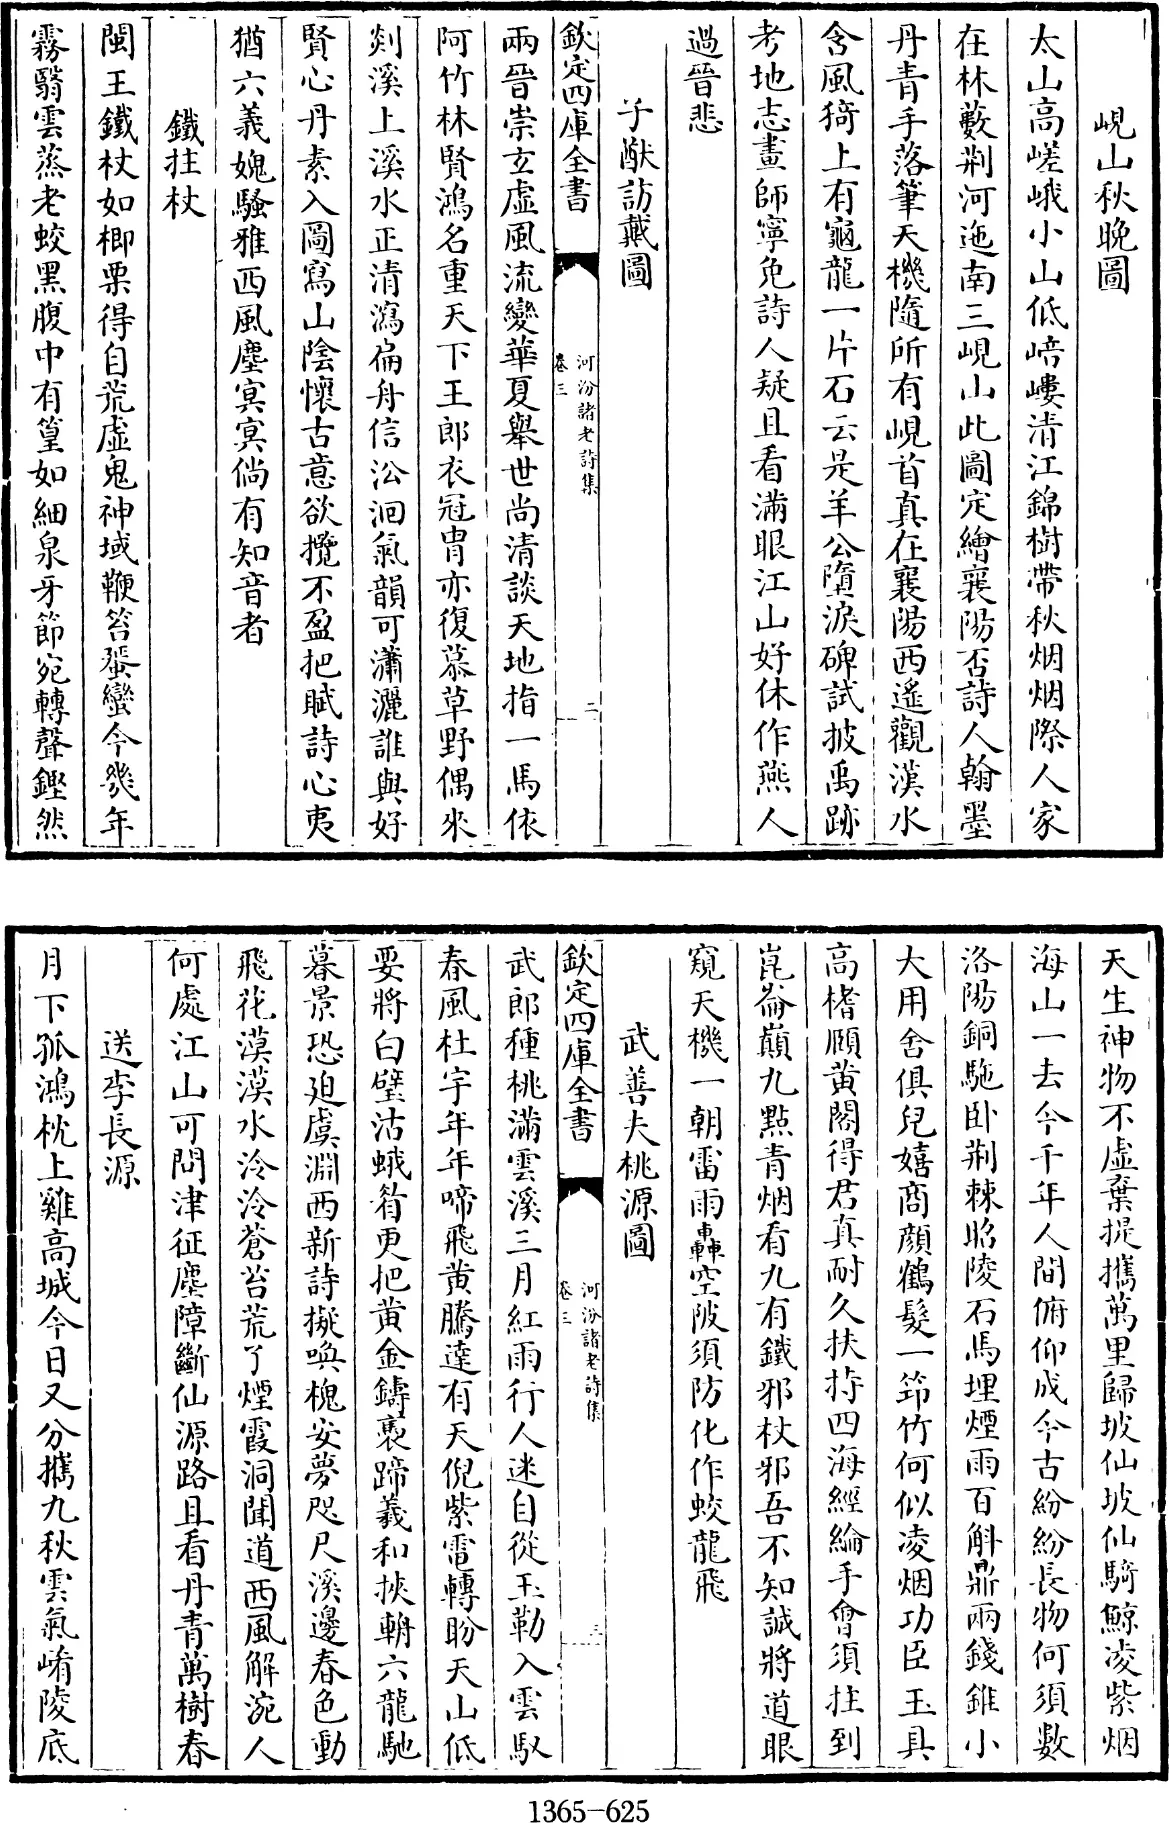 峴山秋晚圖
太山高嵯峨小山低㟝嶁清江錦樹帶秋烟烟際人家
在林藪荆河迤南三峴山此圖定繪襄陽否詩人翰墨
丹青手落筆天機隨所有峴首真在襄陽西遙觀漢水
含風猗上有龜龍一片石云是羊公墮淚碑試披禹跡
考地志畫師寧免詩人疑且看滿眼江山好休作燕人
過晉悲
子猷訪戴圖
欽定四庫全書
河汾諸老詩集
卷三
二
兩晉崇玄虛風流變華夏舉世尚清談天地指一馬依
阿竹林賢鴻名重天下王郎衣冠胄亦復慕草野偶來
剡溪上溪水正清瀉扁舟信㳂洄氣韻可瀟灑誰與好
賢心丹素入圖寫山陰懷古意欲攬不盈把賦詩心夷
猶六義媿騷雅西風塵冥冥倘有知音者
鐵拄杖
閩王鐵杖如楖栗得自荒虛鬼神域鞭笞蜑蠻今幾年
霧翳雲蒸老蛟黑腹中有篁如細泉牙節宛轉聲鏗然
天生神物不虛棄提攜萬里歸坡仙坡仙騎鯨凌紫烟
海山一去今千年人間俯仰成今古紛紛長物何須數
洛陽銅駞卧荆棘昭陵石馬埋煙雨百斛鼎兩錢錐小
大用舍俱兒嬉商顔鶴髮一笻竹何似凌烟功臣玉具
高榰頤黄閣得君真耐久扶持四海經綸手會須拄到
崑崙巔九點青烟看九有鐵邪杖邪吾不知誠將道眼
窺天機一朝雷雨轟空陂須防化作蛟龍飛
武善夫桃源圖
欽定四庫全書
河汾諸老詩集
卷三
三
武郎種桃滿雲溪三月紅雨行人迷自從玉勒入雲馭
春風杜宇年年啼飛黄騰達有天倪紫雷轉盼天山低
要將白璧沽蛾眉更把黄金鑄褭蹄羲和挾輈六龍馳
暮景恐迫虞淵西新詩擬喚槐安夢咫尺溪邊春色動
飛花漠漠水泠泠蒼苔荒了煙霞洞聞道西風解涴人
何處江山可問津征塵障斷仙源路且看丹青萬樹春
送李長源
月下孤鴻枕上雞高城今日又分攜九秋雲氣崤陵底
1365-625